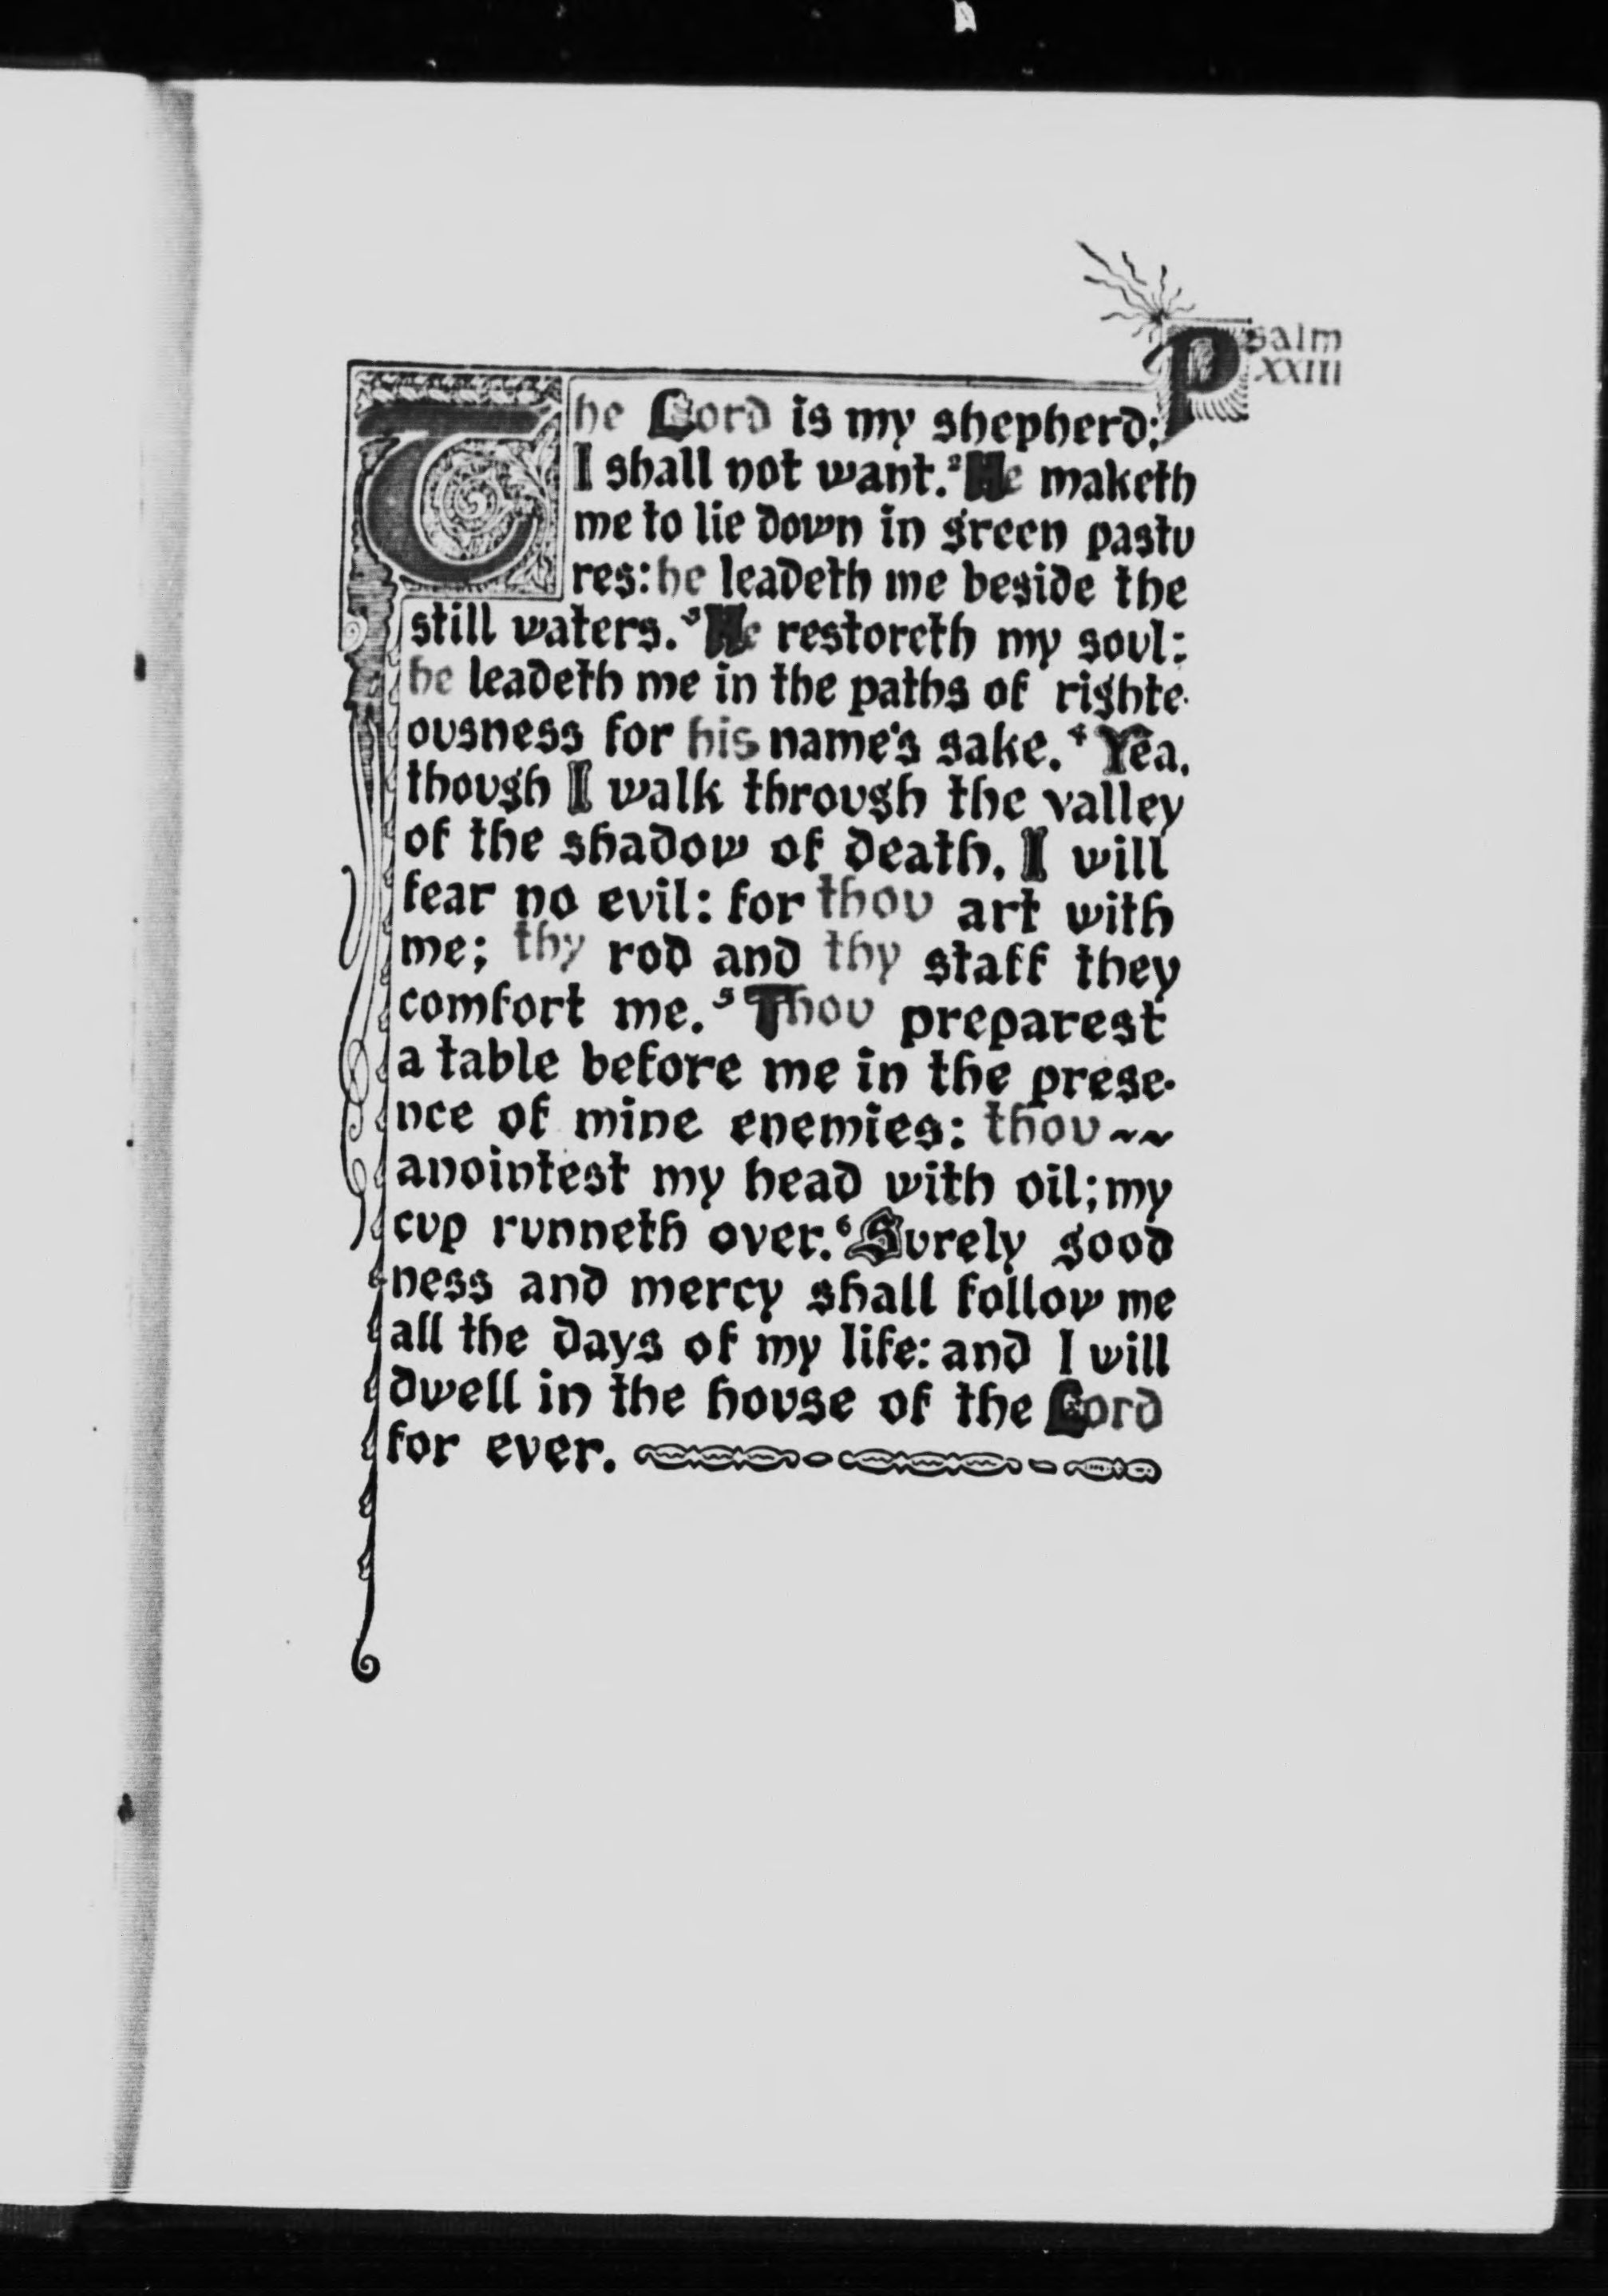 Psalm
XXIII
The Lord is my shepherd;
I shall not want. ²He maketh
me to lie down in green pastu
res: he leadeth me beside the
still waters. ³He restoreth my soul:
he leadeth me in the paths of righte-
ousness for his name's sake. ⁴Yea,
though I walk through the valley
of the shadow of death, I will
fear no evil: for thou art with
me; thy rod and thy staff they
comfort me. ⁵Thou preparest
a table before me in the prese-
nce of mine enemies: thou ~~
anointest my head with oil; my
cup runneth over. ⁶Surely good
ness and mercy shall follow me
all the days of my life: and I will
dwell in the house of the Lord
for ever.